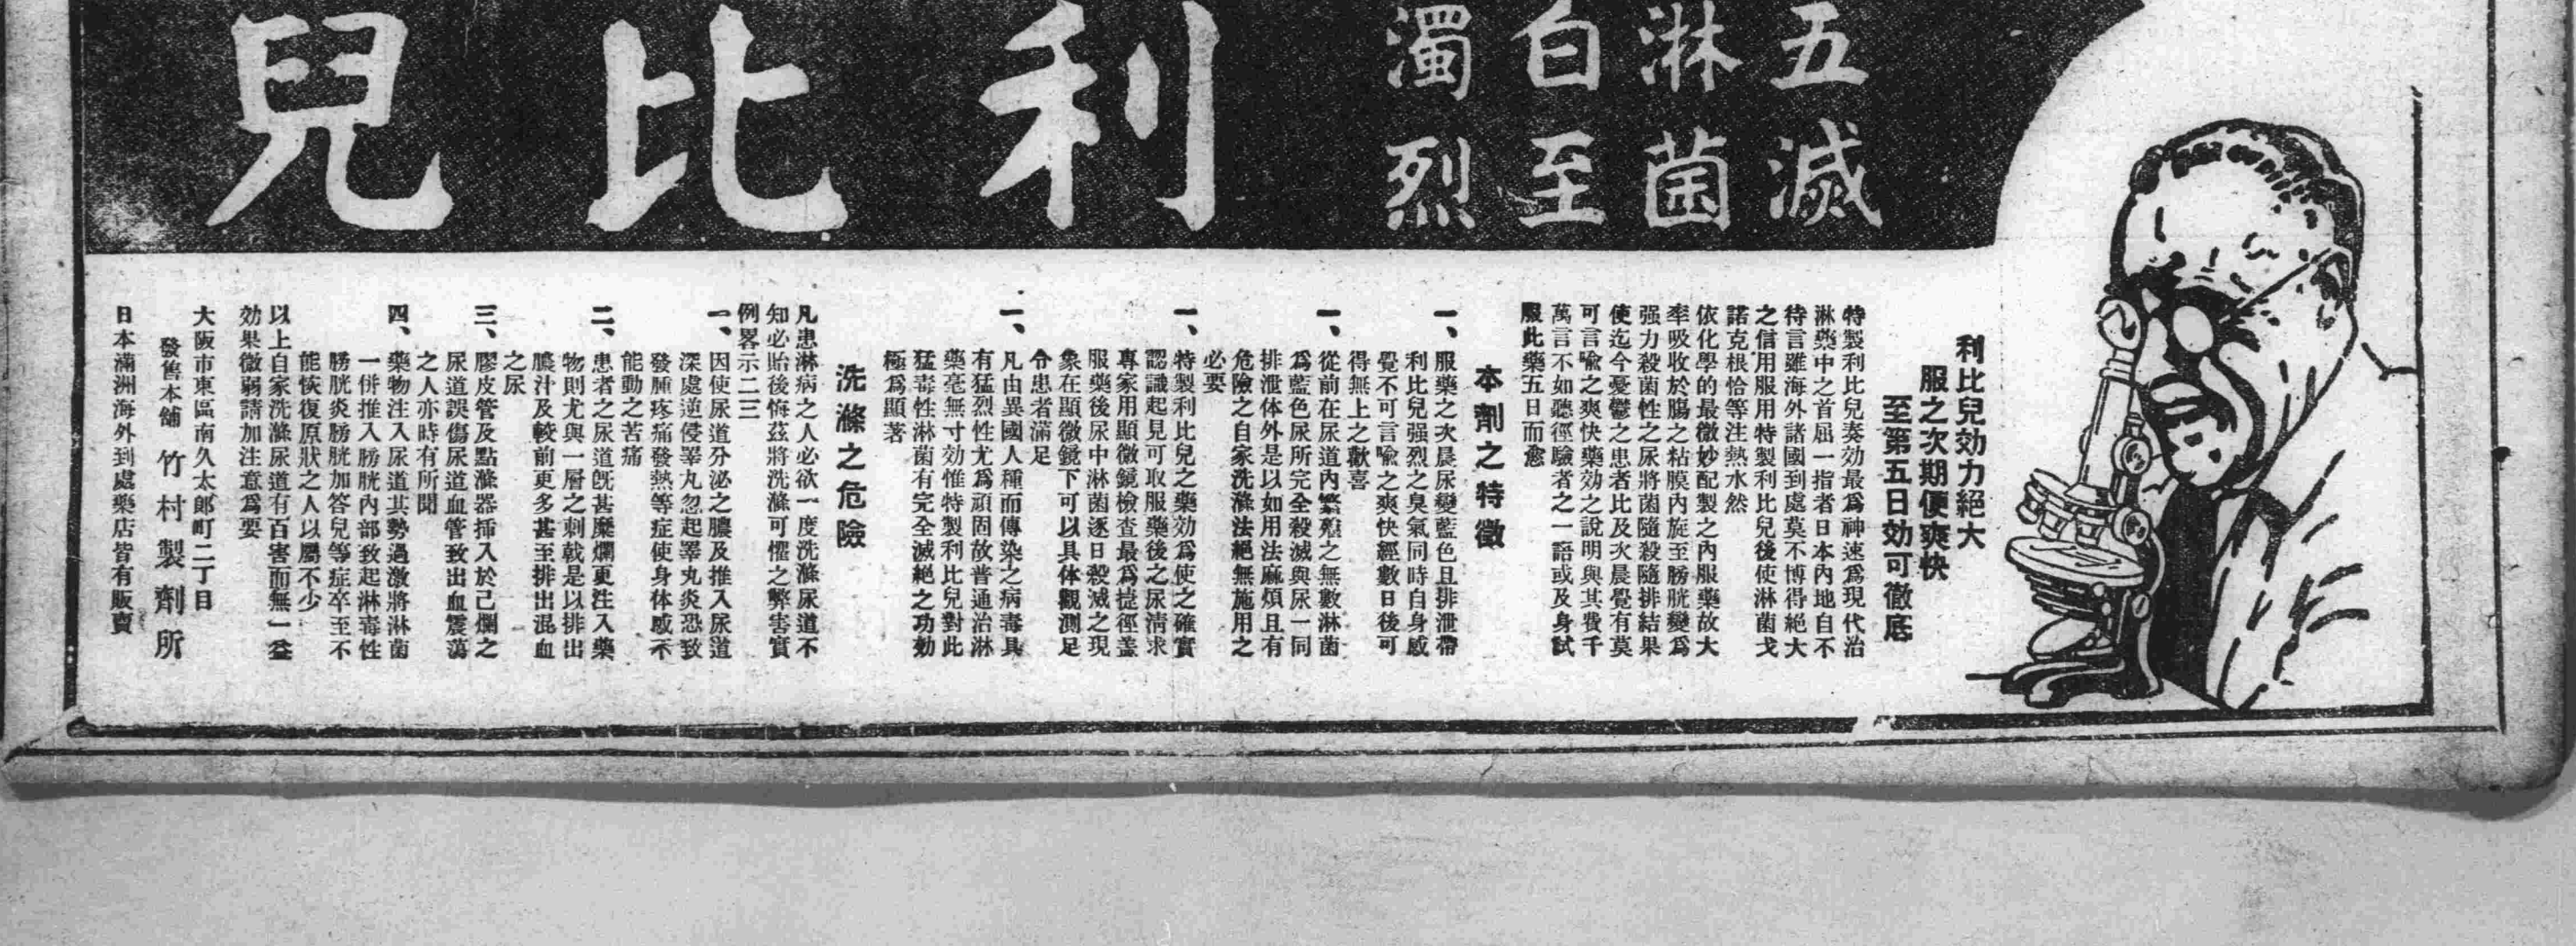 五滅
淋菌
白至
濁烈
利比兒
利比兒効力絕大
服之次期便爽快
至第五日効可徹底
特製利比兒奏効最爲神速爲現代治
淋藥中之首屈一指者日本內地自不
待言雖海外諸國到處莫不博得絕大
之信用服用特製利比兒後使淋菌戈
諾克根恰等注熱水然
依化學的最微妙配製之內服藥故大
率吸收於腸之粘膜內旋至膀胱變爲
强力殺菌性之尿將菌隨殺隨排結果
使迄今憂鬱之患者比及次晨覺有莫
可言喩之爽快藥効之說明與其費千
萬言不如聽徑驗者之一語或及身試
服此藥五日而愈
本劑之特徵
一、服藥之次晨尿變藍色且排泄帶
利比兒强烈之臭氣同時自身感
覺不可言喩之爽快經數日後可
得無上之歡喜
一、從前在尿道內繁殖之無數淋菌
爲藍色尿所完全殺滅與尿一同
排泄体外是以如用法麻煩且有
危險之自家洗滌法絕無施用之
必要
一、特製利比兒之藥効爲使之確實
認識起見可取服藥後之尿淸求
專家用顯微鏡檢查最爲捷徑蓋
服藥後尿中淋菌逐日殺滅之現
象在顯微鏡下可以具体觀測足
令患者滿足
一、凡由異國人種而傳染之病毒具
有猛烈性尤爲頑固故普通治淋
藥毫無寸効惟特製利比兒對此
猛毒性淋菌有完全滅絕之功効
極爲顯著
洗滌之危險
凡患淋病之人必欲一度洗滌尿道不
知必貽後悔茲將洗滌可懼之弊害實
例畧示二三
一、因使尿道分泌之膿及推入尿道
深處逆侵睪丸忽起睪丸炎恐致
發腫疼痛發熱等症使身体感不
能動之苦痛
二、患者之尿道旣甚糜爛更注入藥
物則尤與一層之刺戟是以排出
膿汁及較前更多甚至排出混血
之尿
三、膠皮管及點滌器揷入於己爛之
尿道誤傷尿道血管致出血震蕩
之人亦時有所聞
四、藥物注入尿道其勢過激將淋菌
一併推入膀胱內部致起淋毒性
膀胱炎膀胱加答兒等症卒至不
能恢復原狀之人以屬不少
以上自家洗滌尿道有百害而無一益
効果微弱請加注意爲要
大阪市東區南久太郎町二丁目
發售本舖 竹村製劑所
日本滿洲海外到處藥店皆有販賣